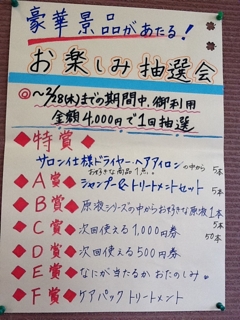 豪華景品があたる!
お楽しみ抽選会
◎~2/28(木)までの期間中、御利用
金額4,000円で1回抽選
◆特賞◆
サロン仕様ドライヤー・ヘアアイロンの中から
お好きな商品1点! 5本
◆A賞◆シャンプー&トリートメントセット 5本
◆B賞◆原液シリーズの中からお好きな原液1本 5本
◆C賞◆次回使える1,000円券 50本
◆D賞◆次回使える500円券
◆E賞◆なにが当たるか おたのしみ。
◆F賞◆ケアパックトリートメント